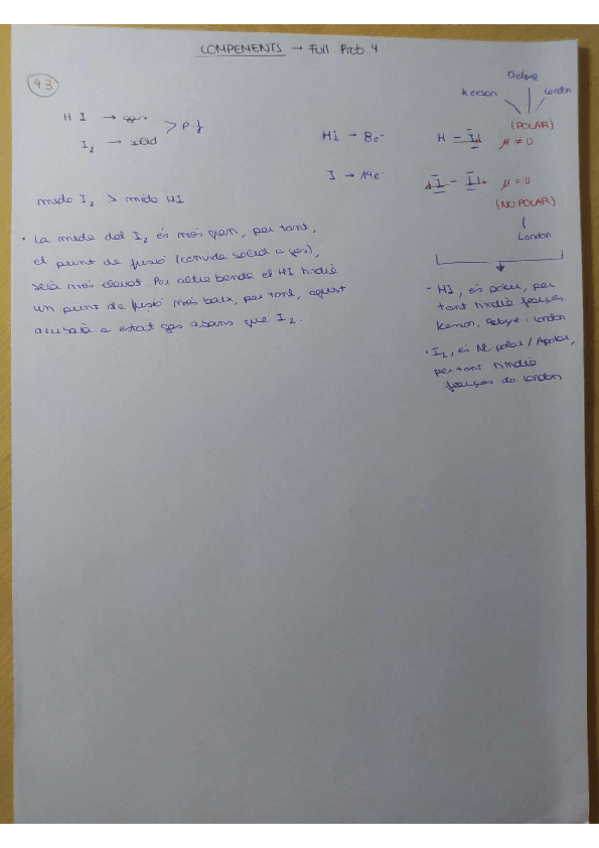 COMPEMENTS → Full Prob. 4
43
HI → gas
I₂ → sòlid
> p f
mida I₂ > mida HI
• La mida del I₂ és més gran, per tant,
el punt de fusió (canvida sòlid a gas),
serà més elevat. Per altre banda el HI tindrà
un punt de fusió més baix, per tant, aquest
arribarà a estat gas abans que I₂.
HI → 8e⁻
I → 14e⁻
Debye
Keeson
London
(POLAR)
H - I
μ ≠ 0
I - I
μ = 0
(NO POLAR)
London
- HI, és polar, per
tant tindrà forçes
Keeson, Debye i London
• I₂, és NO polar / Apolar,
per tant tindrà
forçes de London